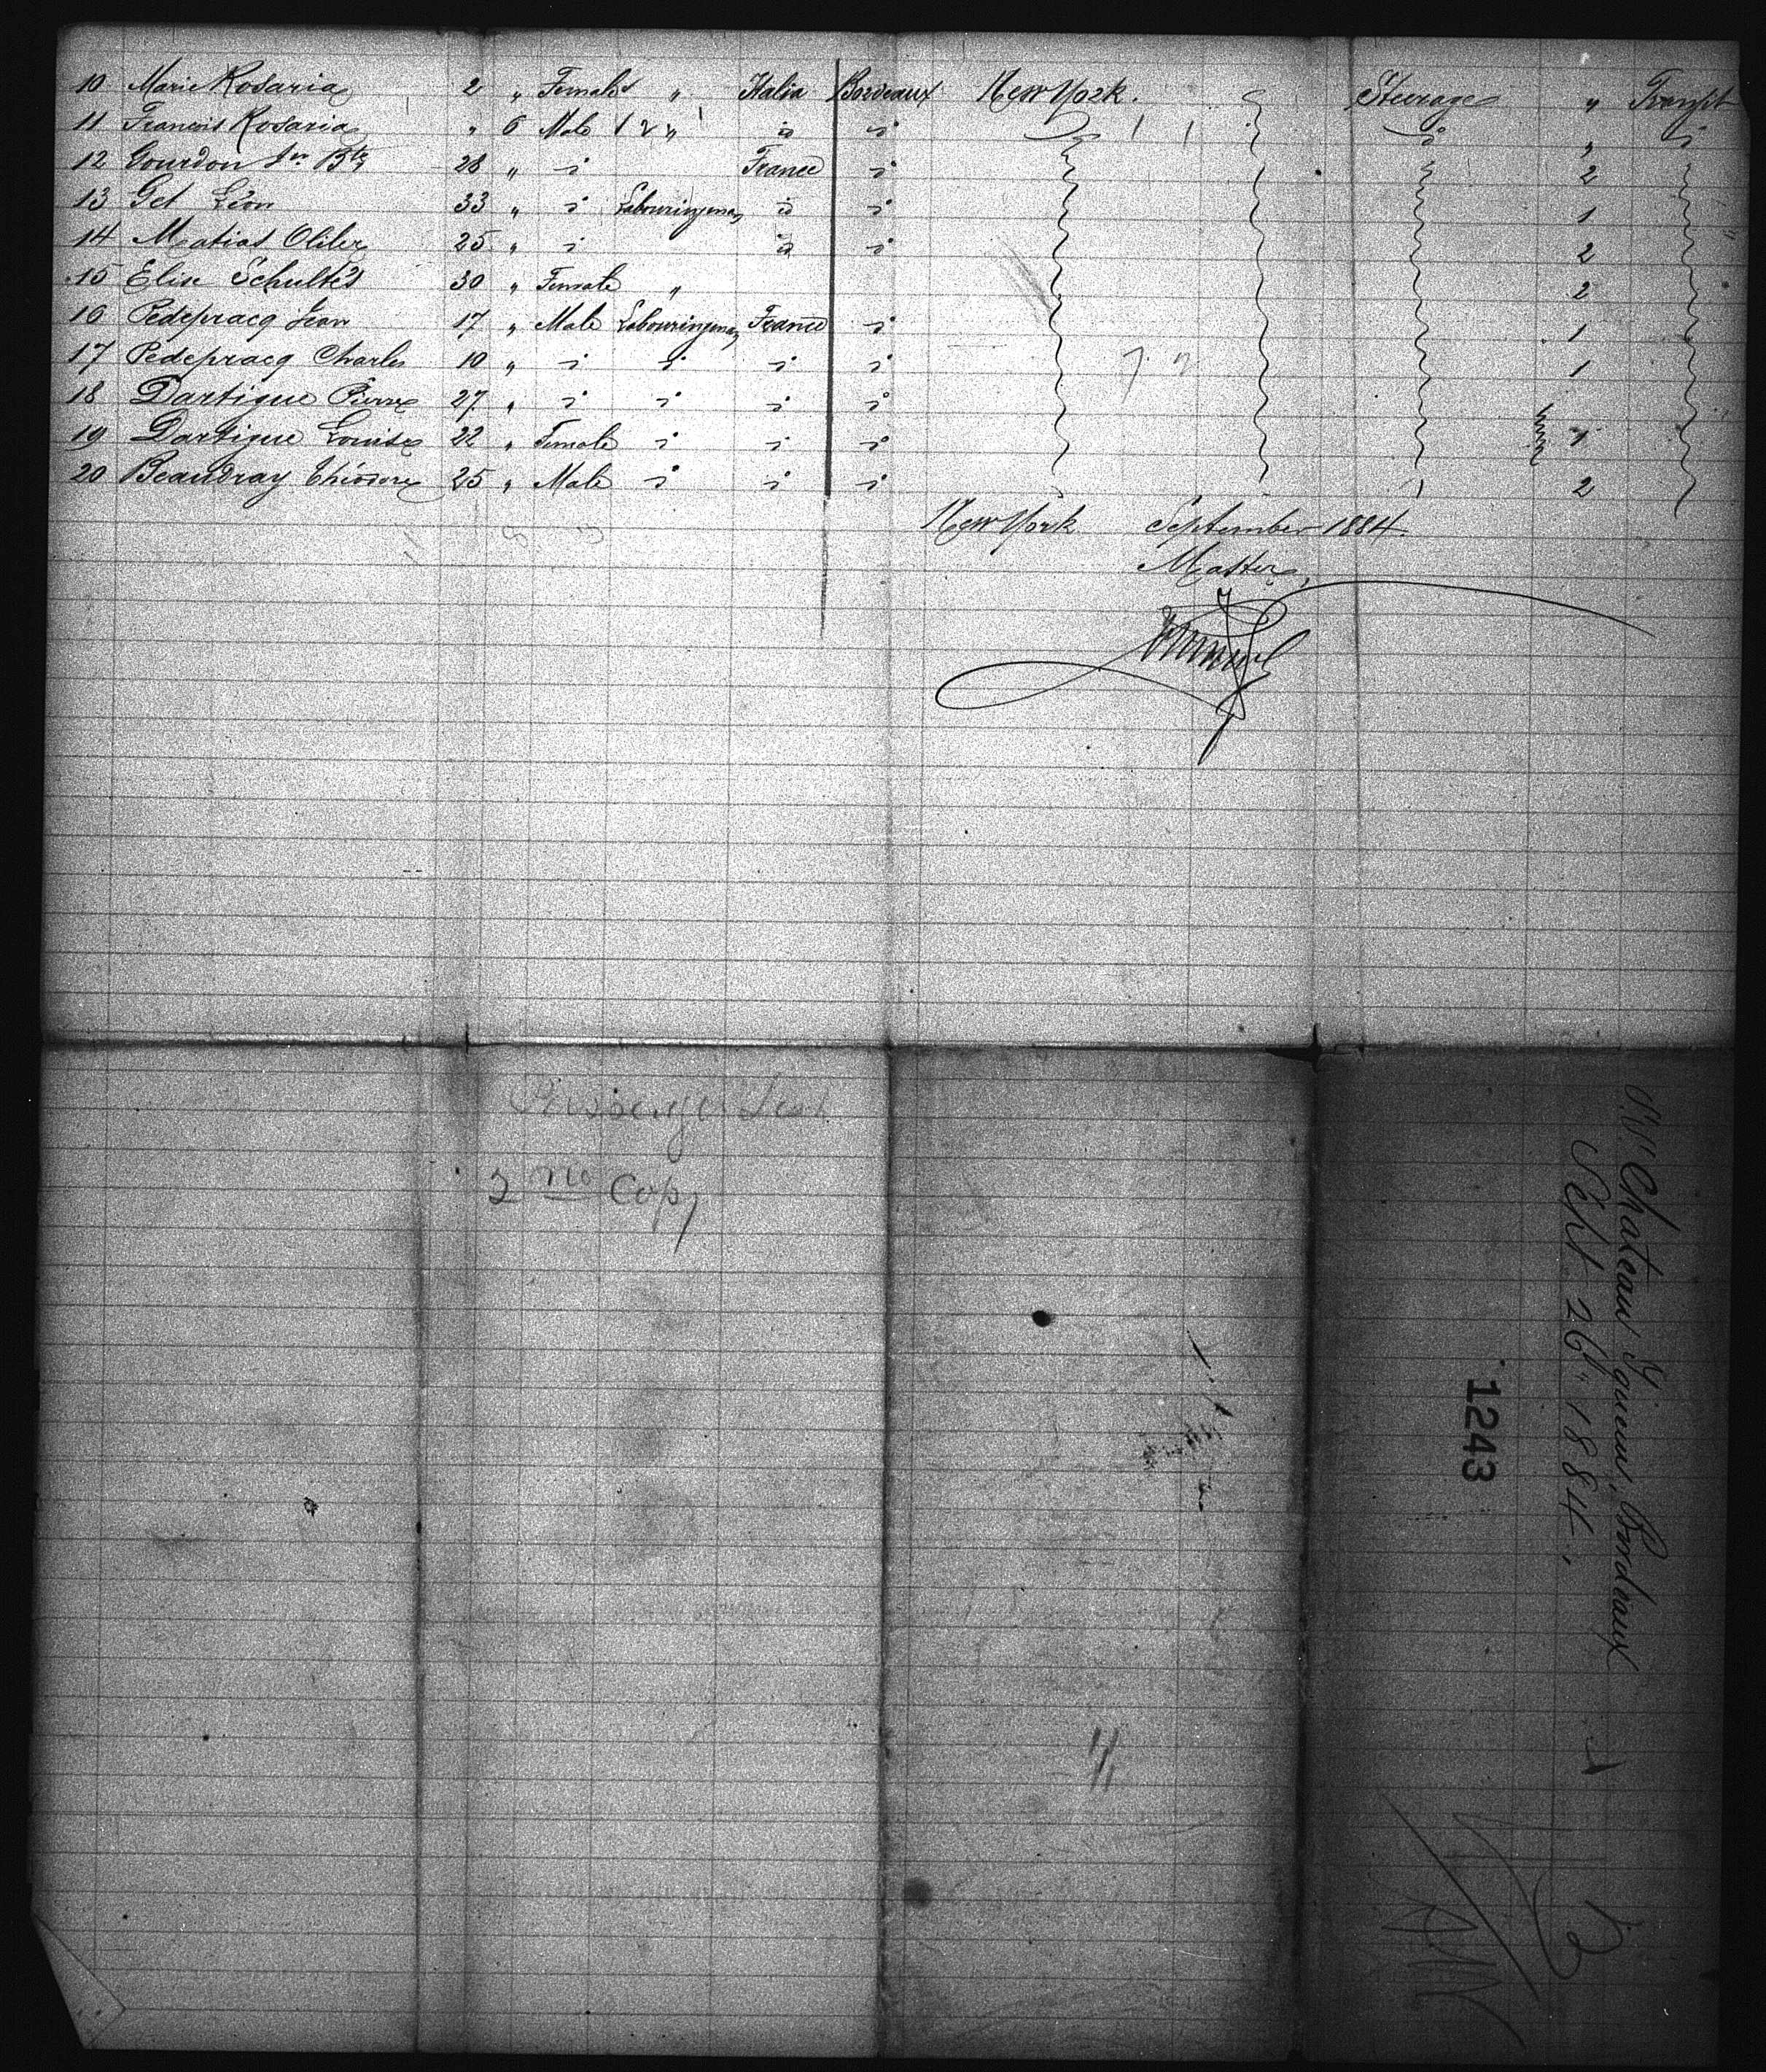 10 Marie Rosaria 2 " Female " Italia Bordeaux New York. Steerage " Transit
11 Francois Rosaria " 6 Male " id id id "
12 Gourdon Jn Bte 28 " id France id 2
13 Get Léon 33 " id Labouringman id id 1
14 Matias 25 " id id id 2
15 Elise Schultés 30 " Female " 2
16 Pedepracq Jean 17 " Male Labouringman France id 1
17 Pedepracq Charles 10 " id id id id 1
18 Dartigue Pierre 27 " id id id id
19 Dartigue Louise 22 " Female id id id 1
20 Beaudray Théodore 25 " Male id id id 2
New York September 1884.
Master,
Passenger List
2nd Copy
S.S. Chateau Yquem, Bordeaux
Sept 26" 1884.
1243